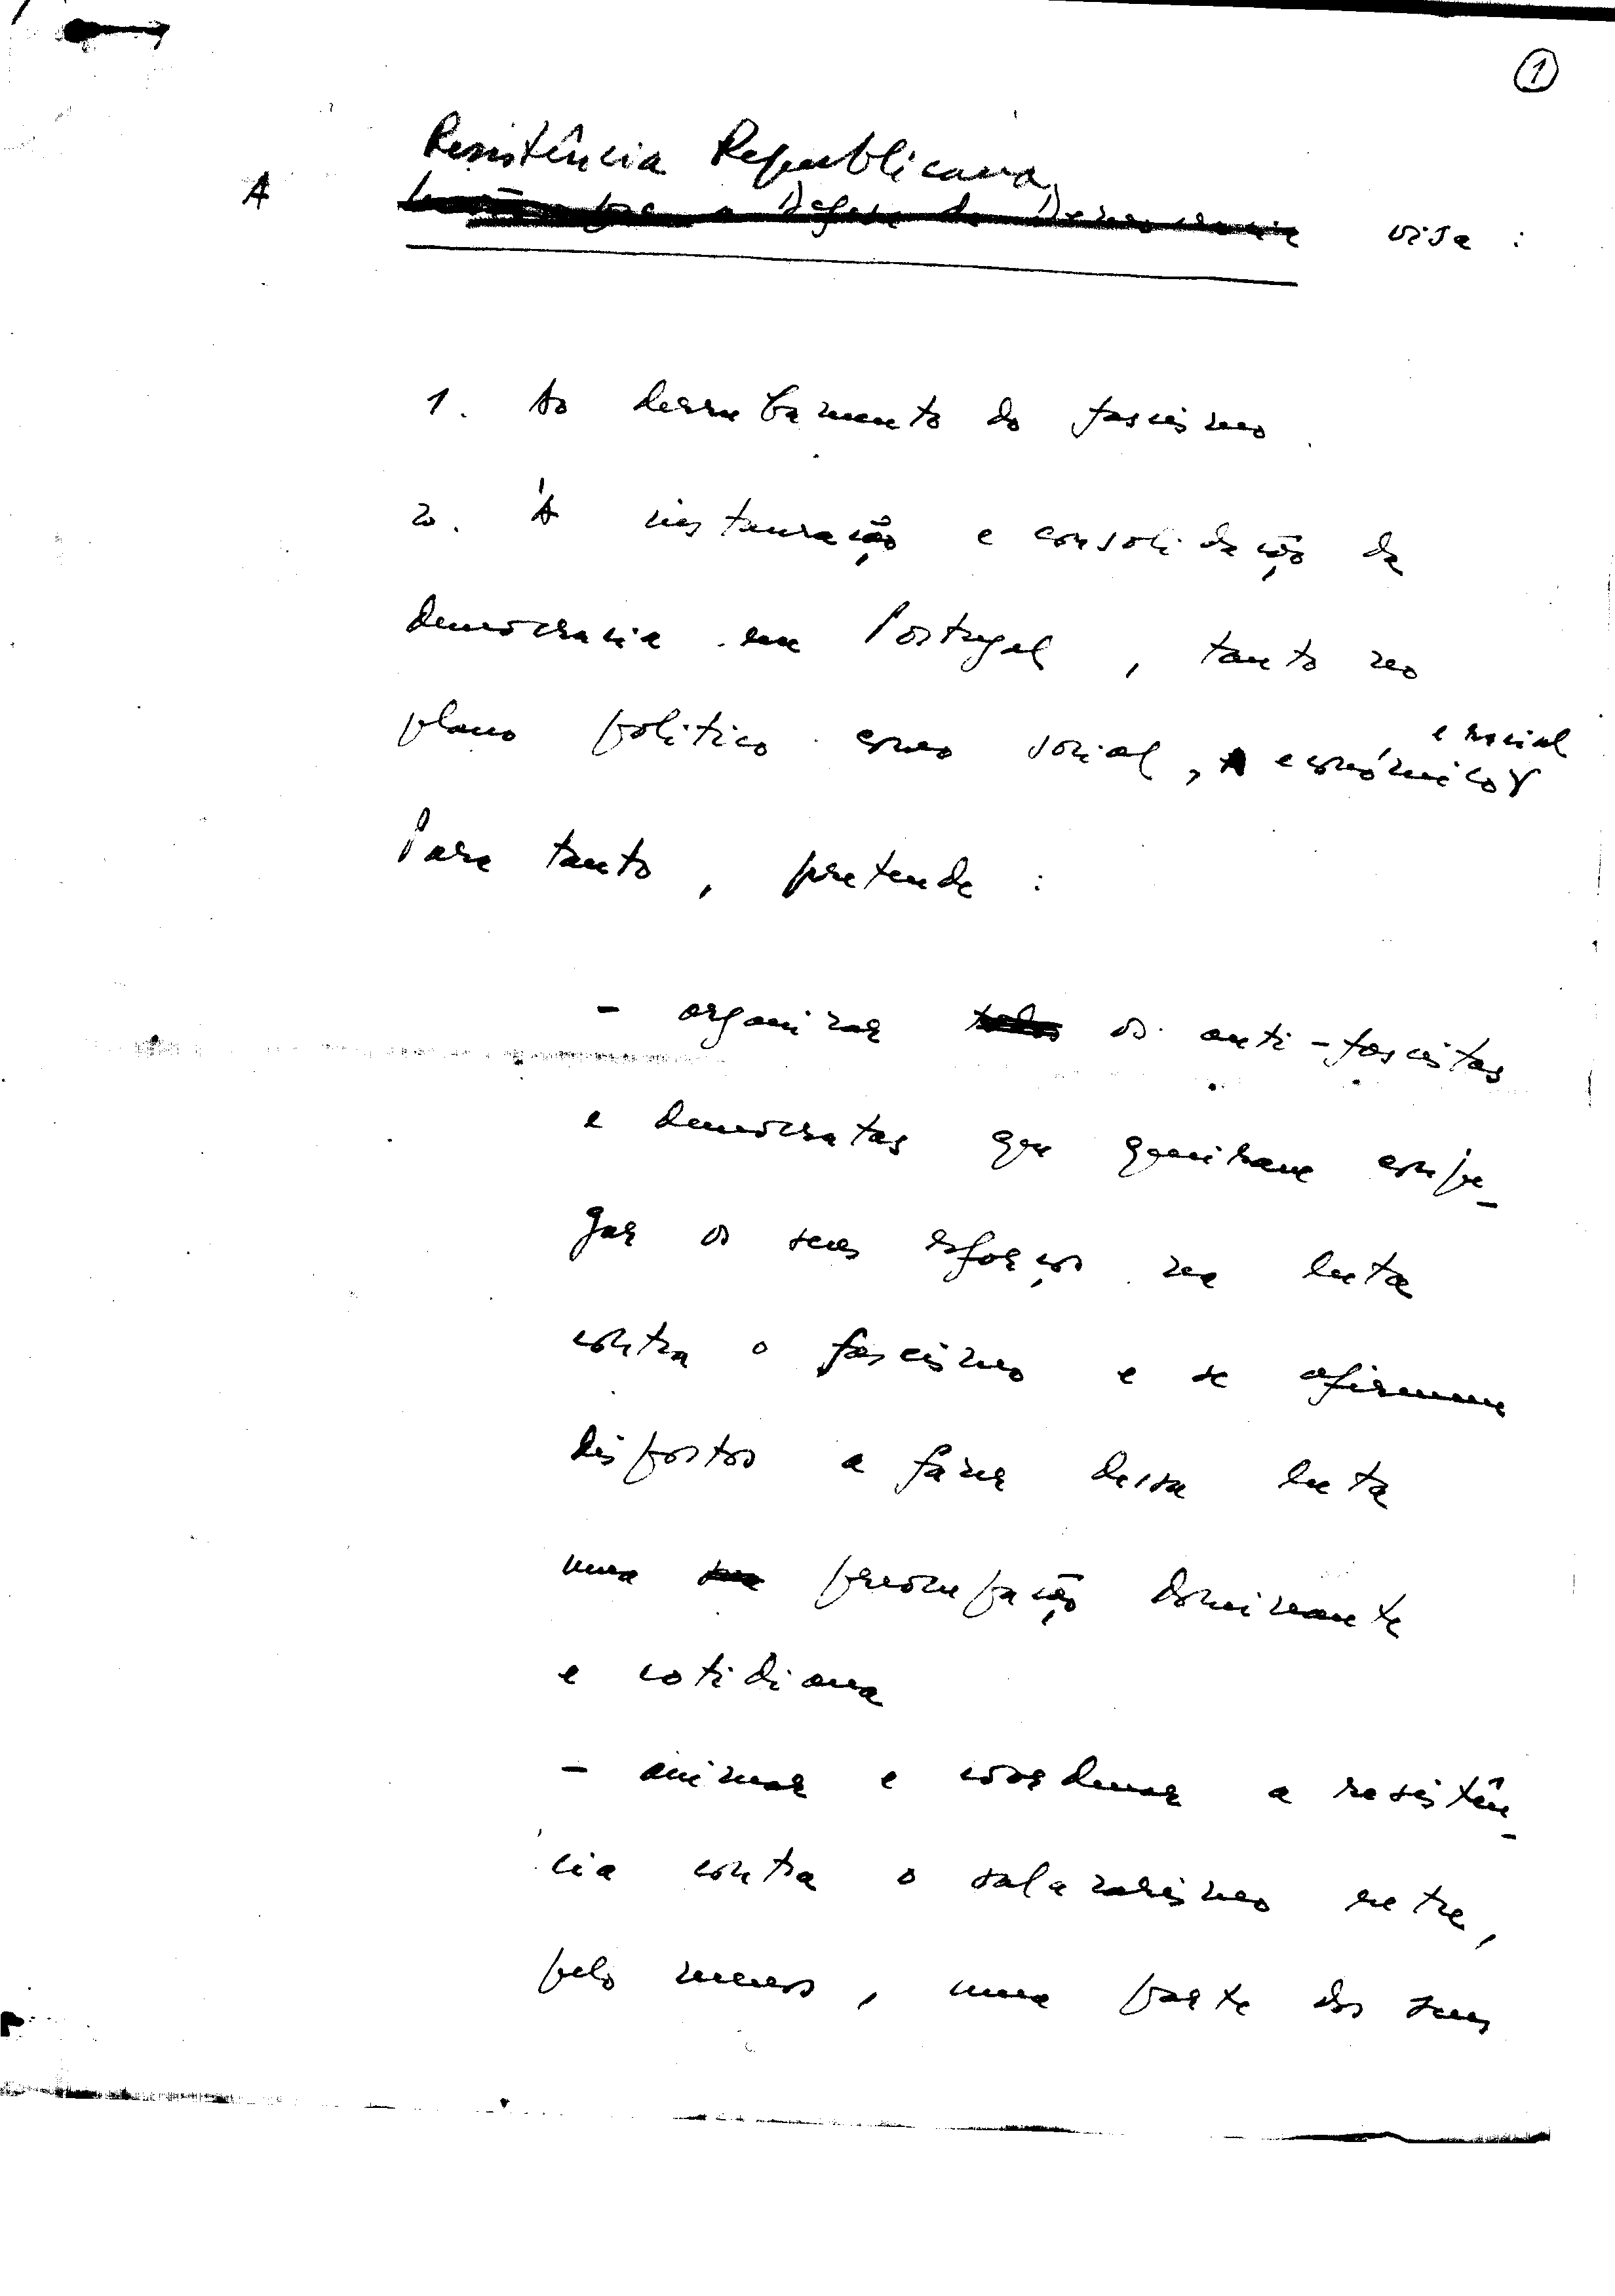 1
Resistência Republicana,
A a Defesa da Democracia visa :
1. Ao derrubamento do fascismo.
2. À instauração e consolidação da
democracia em Portugal, tanto no
plano politico como social, económico e social
Para tanto, pretende :
- organizar todos os anti-fascistas
e democratas que queiram conju-
gar os seus esforços na luta
contra o fascismo e se afirmem
dispostos a fazer dessa luta
uma sua preocupação dominante
e cotidiana
- animar e coordenar a resistên-
cia contra o salazarismo entre,
pelo menos, uma parte dos seus